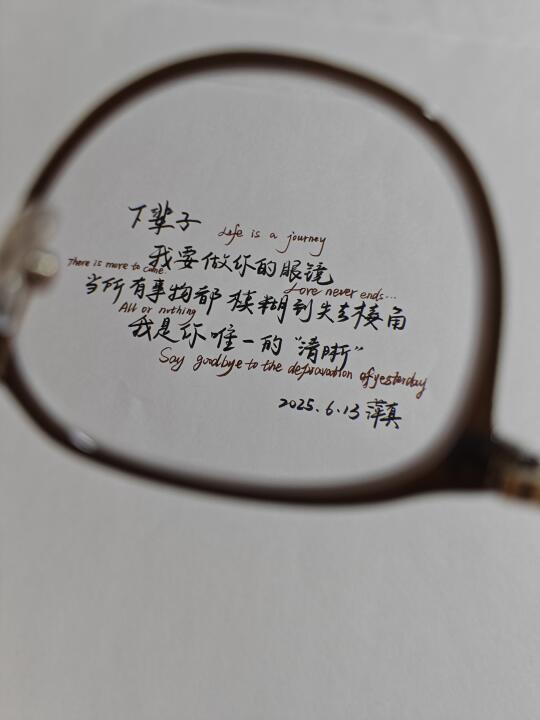 下辈子
Life is a journey
我要做你的眼镜
There is more to come.
Love never ends...
当所有事物都模糊到失去棱角
All or nothing
我是你唯一的“清晰”
Say goodbye to the depravation of yesterday
2025.6.13 萍真